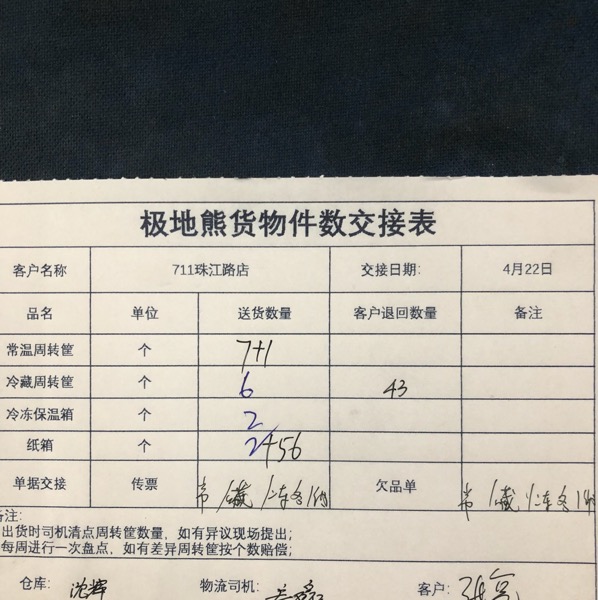 极地熊货物件数交接表
客户名称 711珠江路店 交接日期: 4月22日
品名 单位 送货数量 客户退回数量 备注
常温周转筐 个 7+1
冷藏周转筐 个 6 43
冷冻保温箱 个 2
纸箱 个 2+56
单据交接 传票 欠品单
备注:
出货时司机清点周转筐数量,如有异议现场提出;
每周进行一次盘点,如有差异周转筐按个数赔偿;
仓库: 沈辉 物流司机: 客户: